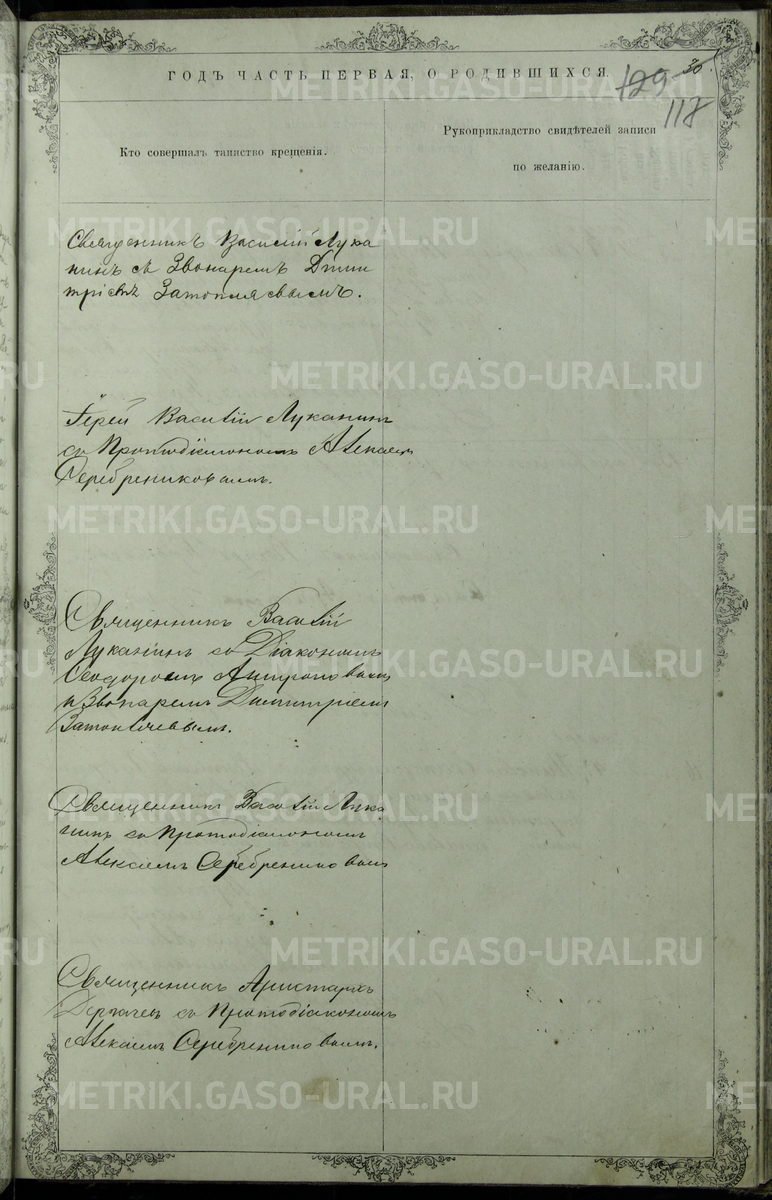 ГОДЪ ЧАСТЬ ПЕРВАЯ, О РОДИВШИХСЯ.
129
30
118
Кто совершалъ таинство крещенія.
Рукоприкладство свидѣтелей записи
по желанію.
Священникъ Василій Лука
нинъ съ Звонаремъ Дими
тріемъ
Іерей Василій Луканинъ
съ Протодіакономъ Алексѣемъ
Серебрениковымъ.
Священникъ Василій
Луканинъ съ Діакономъ
Ѳеодоромъ Антроповымъ
и Звонаремъ Димитріемъ
Священникъ Василій Лука
нинъ съ Протодіакономъ
Алексѣемъ Серебрениковымъ
Священникъ Аристархъ
съ Протодіакономъ
Алексѣемъ Серебрениковымъ.
METRIKI.GASO-URAL.RU